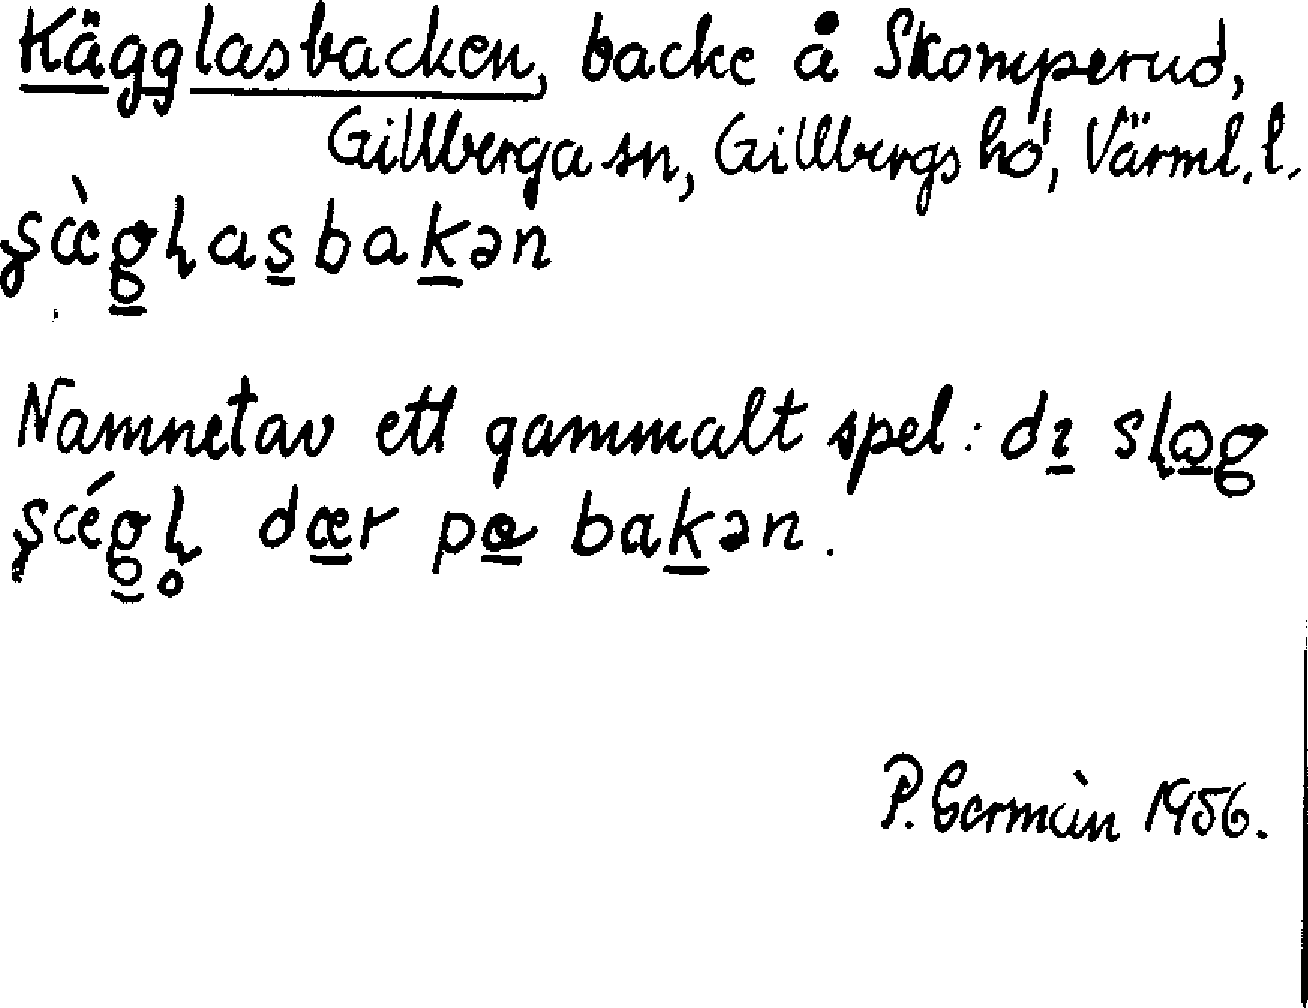 Kägglasbacken, backe å Skomperud,
Gillberga sn, Gillbergs hd, Värml. l.
ʂæ̀g̲ɭas̲bak̲ən
Namnet av ett gammalt spel: dɪ̲ sɭɔ̲g
ʂǽg̲ɭ̥ dæ̲r pɔ̲ bak̲ən.
P. Germùn 1956.